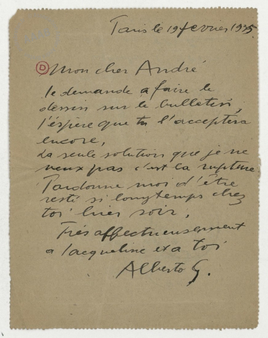 Paris le 19 fevrier 1935
Mon cher André
je demande a faire le
dessin sur le bulletin,
j'éspère que tu l'acceptera
encore,
La seule solution que je ne
veux pas c'est la rupture
Pardonne moi d'être
resté si longtemps chez
toi hier soir,
Très affectueusement
a Jacqueline et a toi
Alberto G.